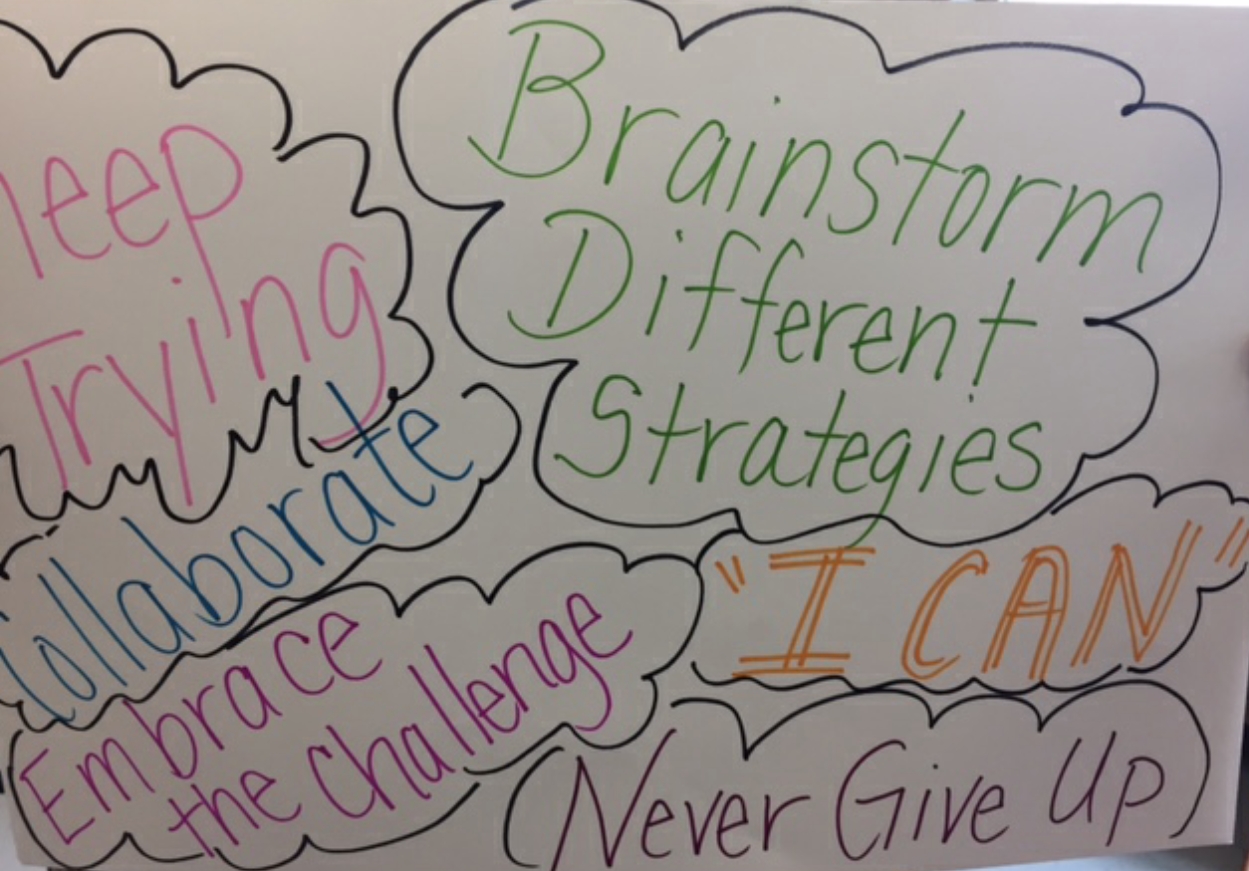 Keep
Trying
Brainstorm
Different
Strategies
Collaborate
"I CAN"
Embrace
the Challenge
Never Give Up